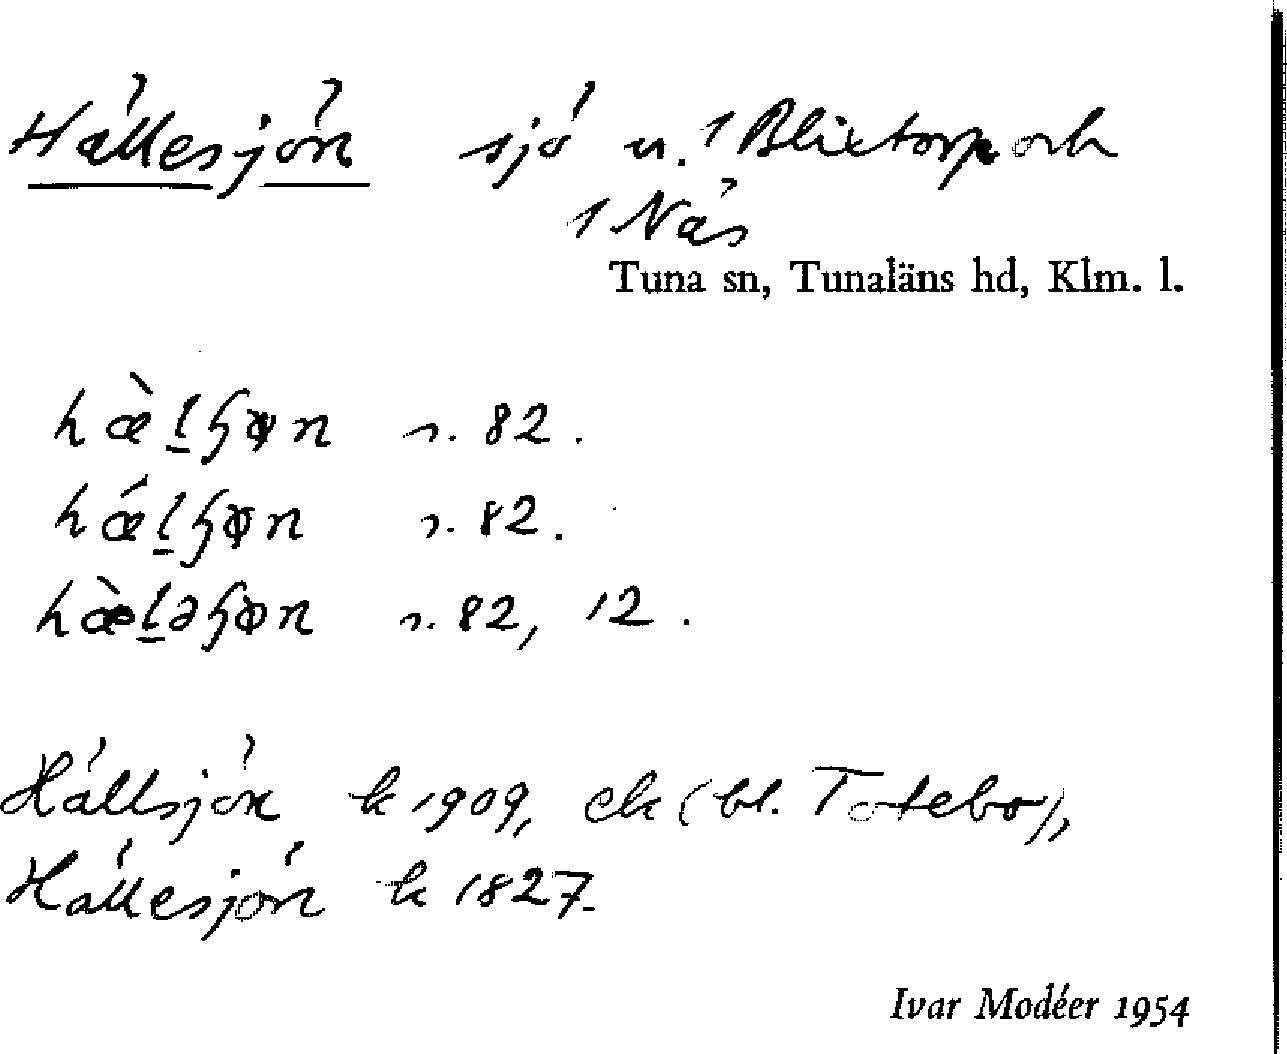 Hällesjön sjö u. 1 Blixtorp och
1 Näs
Tuna sn, Tunaläns hd, Klm. l.
s. 82.
s. 82.
s. 82, 12.
Hällsjön k 1909, ek (bl. Totebo),
Hällesjön k 1827.
Ivar Modéer 1954